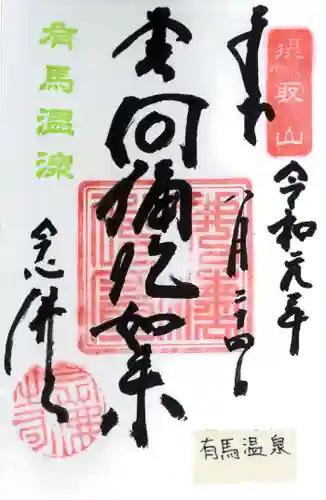 摂取山
奉拝
令和元年
八月二十四日
阿彌陀如来
有馬温泉
念佛寺
有馬温泉